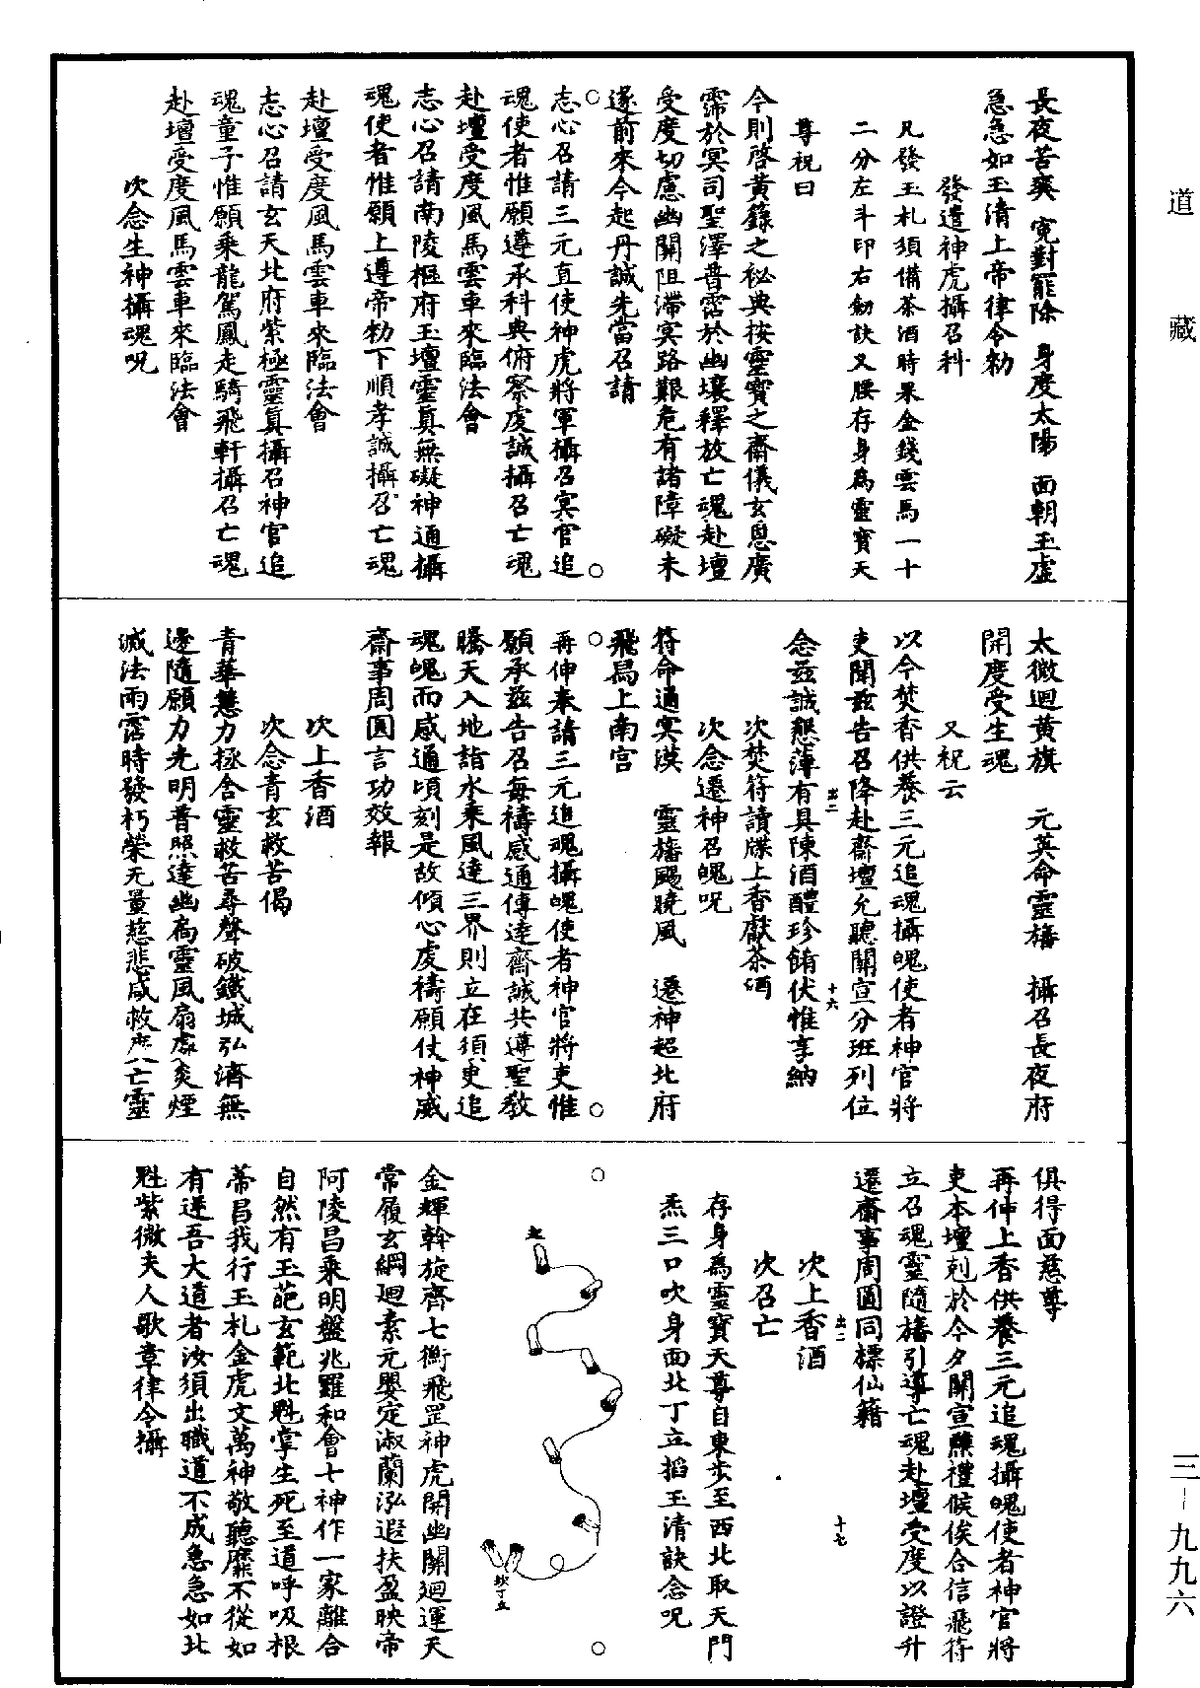 道藏
長夜苦爽 寃對罷除 身度太陽 面朝玉虛
急急如玉清上帝律令勑
發遣神虎攝召科
凡發玉札須備茶酒時果金錢雲馬一十
二分左斗印右劒訣叉腰存身爲靈寶天
尊祝曰
今則啓黃籙之祕典按靈寶之齋儀玄恩廣
霈於冥司聖澤普霑於幽壤釋放亡魂赴壇
受度切慮幽關阻滯冥路艱危有諸障礙未
遂前來今起丹誠先當召請
志心召請三元直使神虎將軍攝召冥官追
魂使者惟願遵承科典俯察虔誠攝召亡魂
赴壇受度風馬雲車來臨法會
志心召請南陵樞府玉壇靈真無礙神通攝
魂使者惟願上遵帝勑下順孝誠攝召亡魂
赴壇受度風馬雲車來臨法會
志心召請玄天北府紫極靈真攝召神官追
魂童子惟願乘龍駕鳳走騎飛軒攝召亡魂
赴壇受度風馬雲車來臨法會
次念生神攝魂呪
太微迴黃旗 元英命靈旛 攝召長夜府
開度受生魂
又祝云
以今焚香供養三元追魂攝魄使者神官將
吏聞兹告召降赴齋壇允聽關宣分班列位
念兹誠懇薄有具陳酒醴珍餚伏惟享納
次焚符讀牒上香獻茶酒
次念遷神召魄呪
符命通冥漠 靈旛颺曉風 遷神超北府
飛舄上南宮
再伸奉請三元追魂攝魄使者神官將吏惟
願承兹告召每禱感通傳達齋誠共遵聖教
騰天入地詣水乘風達三界則立在須臾追
魂魄而感通頃刻是故傾心虔禱願仗神威
齋事周圓言功效報
次上香酒
次念青玄救苦偈
青華慧力拯含靈救苦尋聲破鐵城弘濟無
邊隨願力光明普照達幽扃靈風扇處炎煙
滅法雨霑時發朽榮无量慈悲咸救度亡靈
俱得面慈尊
再伸上香供養三元追魂攝魄使者神官將
吏本壇剋於今夕關宣醮禮候俟合信飛符
立召魂靈隨旛引導亡魂赴壇受度以證升
遷齋事周圓同標仙籍
次上香酒
次召亡
存身爲靈寶天尊自東步至西北取天門
炁三口吹身面北丁立搯玉清訣念呪
金輝斡旋齊七衡飛罡神虎開幽關迴運天
常履玄綱迴素元嬰定淑蘭泓遐扶盈映帝
阿陵昌乘明盤兆羅和會七神作一家離合
自然有玉葩玄範北魁掌生死至道呼吸根
蒂昌我行玉札金虎文萬神敬聽靡不從如
有逆吾大道者汝須出職道不成急急如北
魁紫微夫人歌章律令攝
三－九九六